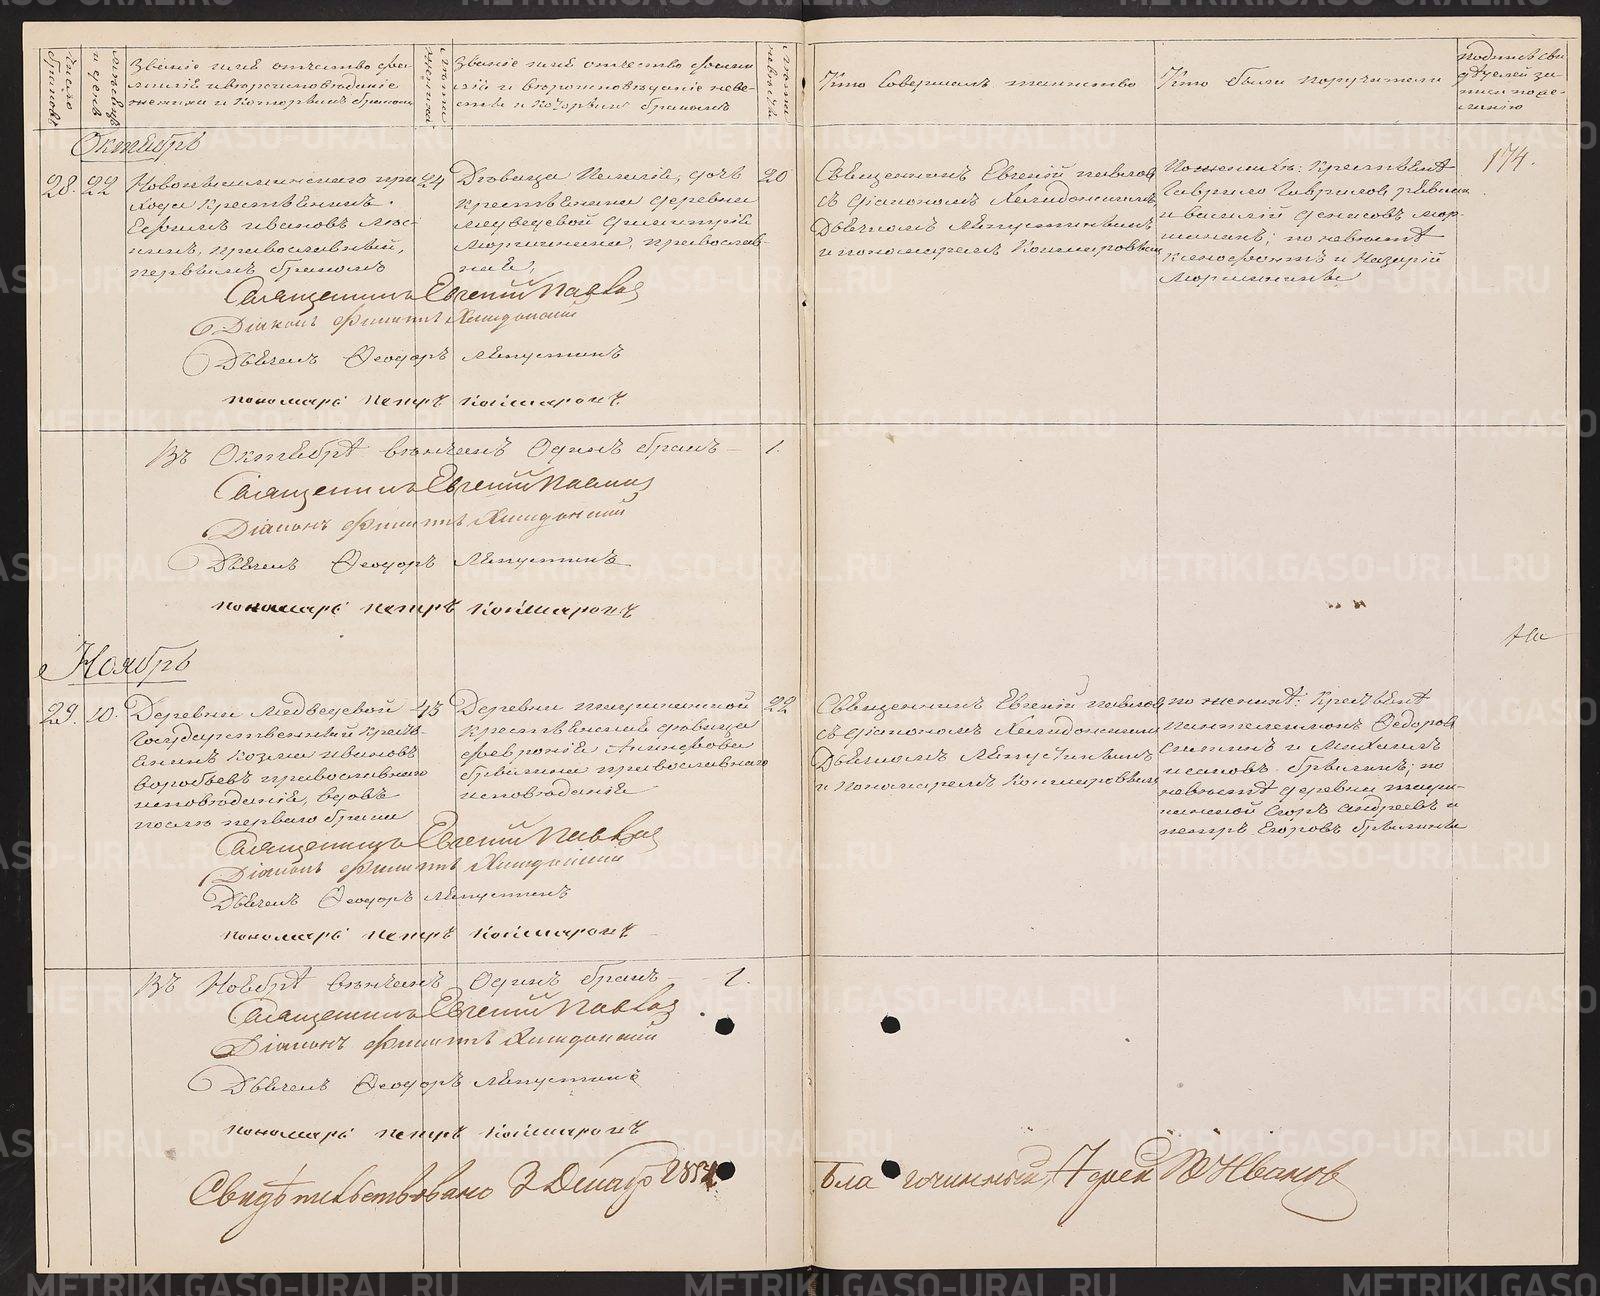 Число браковъ
Мѣсяцъ и день
Званіе имя отчество фа-
миліе и вѣроисповѣданіе
жениха и которымъ бракомъ
Лѣта жениха
Званіе имя отчество фами
лія и вѣроисповѣданіе неве-
сты и которымъ бракомъ
Лѣта невѣсты
Кто совершалъ таинство
Кто были поручители
подпись сви
дѣтелей за
писи по же-
ланію
Октябрь
174.
28. 22
Новопышминскаго при
хода крестьянинъ
Ефимъ Ивановъ
православный,
первымъ бракомъ
24
Дѣвица Пелагія, дочь
крестьянина деревни
Медведевой Димитрія
Моршинина, православ-
ная,
20
Священникъ Евгеній Павловъ
съ діакономъ Хелидонскимъ
Дьячкомъ Мѣпустинымъ
и пономаремъ Кошмаровымъ
По женихѣ: Крестьяне
Гаврило Гавриловъ
и Василій Денисовъ Мор-
шининъ; по невѣстѣ
Ксенофонтъ и Назарій
Моршинины
Священникъ Евгеній Павловъ
Діаконъ Филиппъ Хелидонскій
Дьячекъ Ѳеодоръ Мѣпустинъ
пономарь Петръ Кошмаровъ
Въ Октябрѣ вѣнчанъ Одинъ бракъ — 1.
Священникъ Евгеній Павловъ
Діаконъ Филиппъ Хелидонскій
Дьячекъ Ѳеодоръ Мѣпустинъ
пономарь Петръ Кошмаровъ
Ноябрь
29. 10.
Деревни Медведевой
Государственный кресть-
янинъ Козма Ивановъ
Воробьевъ православнаго
исповѣданія, вдовъ
послѣ перваго брака
45
Деревни
крестьянская дѣвица
Февронія
Брылина православнаго
исповѣданія
22
Священникъ Евгеній Павловъ
съ діакономъ Хелидонскимъ
Дьячкомъ Мѣпустинымъ
и Пономаремъ Кошмаровымъ
по женихѣ: Крестьяне
Пантелеимонъ Ѳедоровъ
и Михаилъ
Исаковъ Брылинъ; по
невѣстѣ деревни
Егоръ Андреевъ и
Петръ Егоровъ Брылины
Священникъ Евгеній Павловъ
Діаконъ Филиппъ Хелидонскій
Дьячекъ Ѳеодоръ Мѣпустинъ
пономарь Петръ Кошмаровъ
Въ Ноябрѣ вѣнчанъ Одинъ бракъ — 1.
Священникъ Евгеній Павловъ
Діаконъ Филиппъ Хелидонскій
Дьячекъ Ѳеодоръ Мѣпустинъ
пономарь Петръ Кошмаровъ
Свидѣтельствовано 3 Декабр
Благочинный Іерей Ивановъ
METRIKI.GASO-URAL.RU